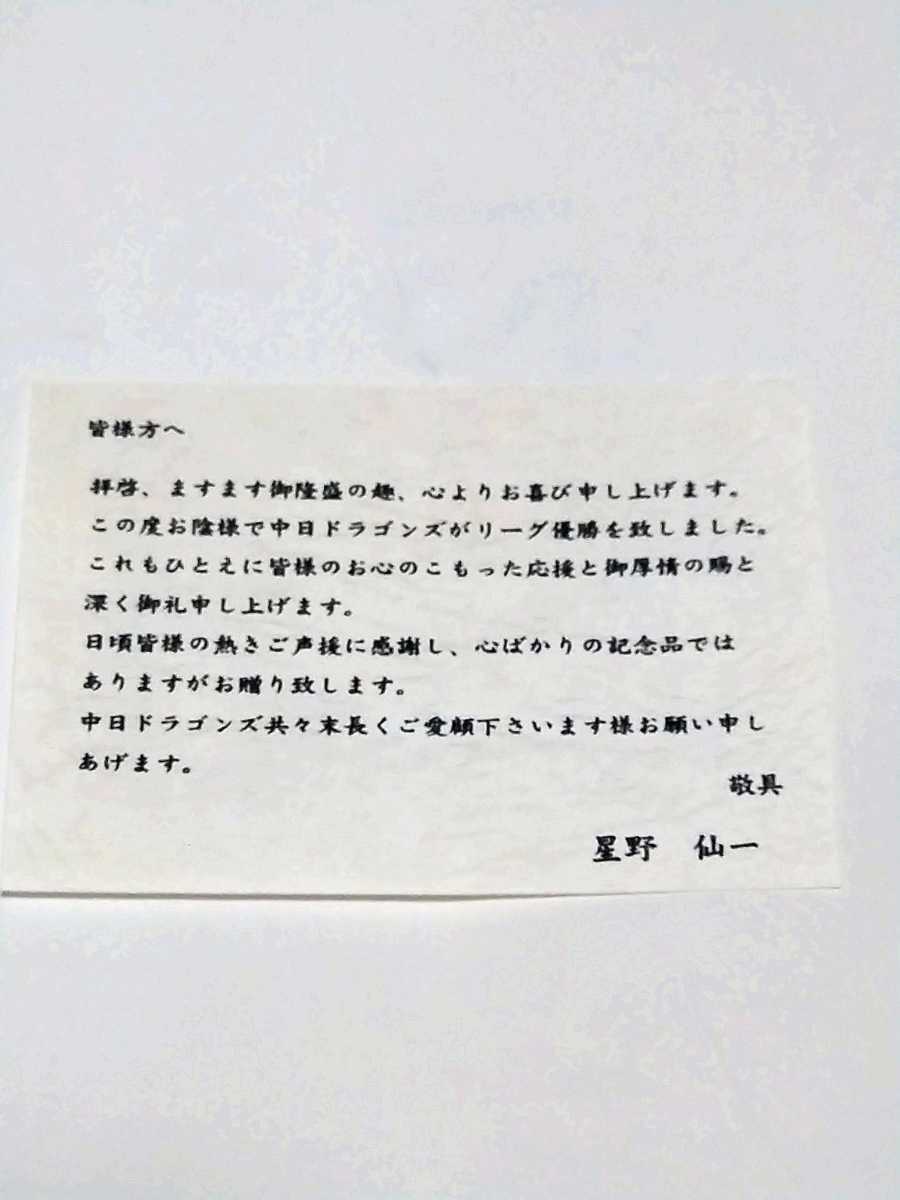 皆様方へ
拝啓、ますます御隆盛の趣、心よりお喜び申し上げます。
この度お陰様で中日ドラゴンズがリーグ優勝を致しました。
これもひとえに皆様のお心のこもった応援と御厚情の賜と
深く御礼申し上げます。
日頃皆様の熱きご声援に感謝し、心ばかりの記念品では
ありますがお贈り致します。
中日ドラゴンズ共々末長くご愛顧下さいます様お願い申し
あげます。
敬具
星野　仙一